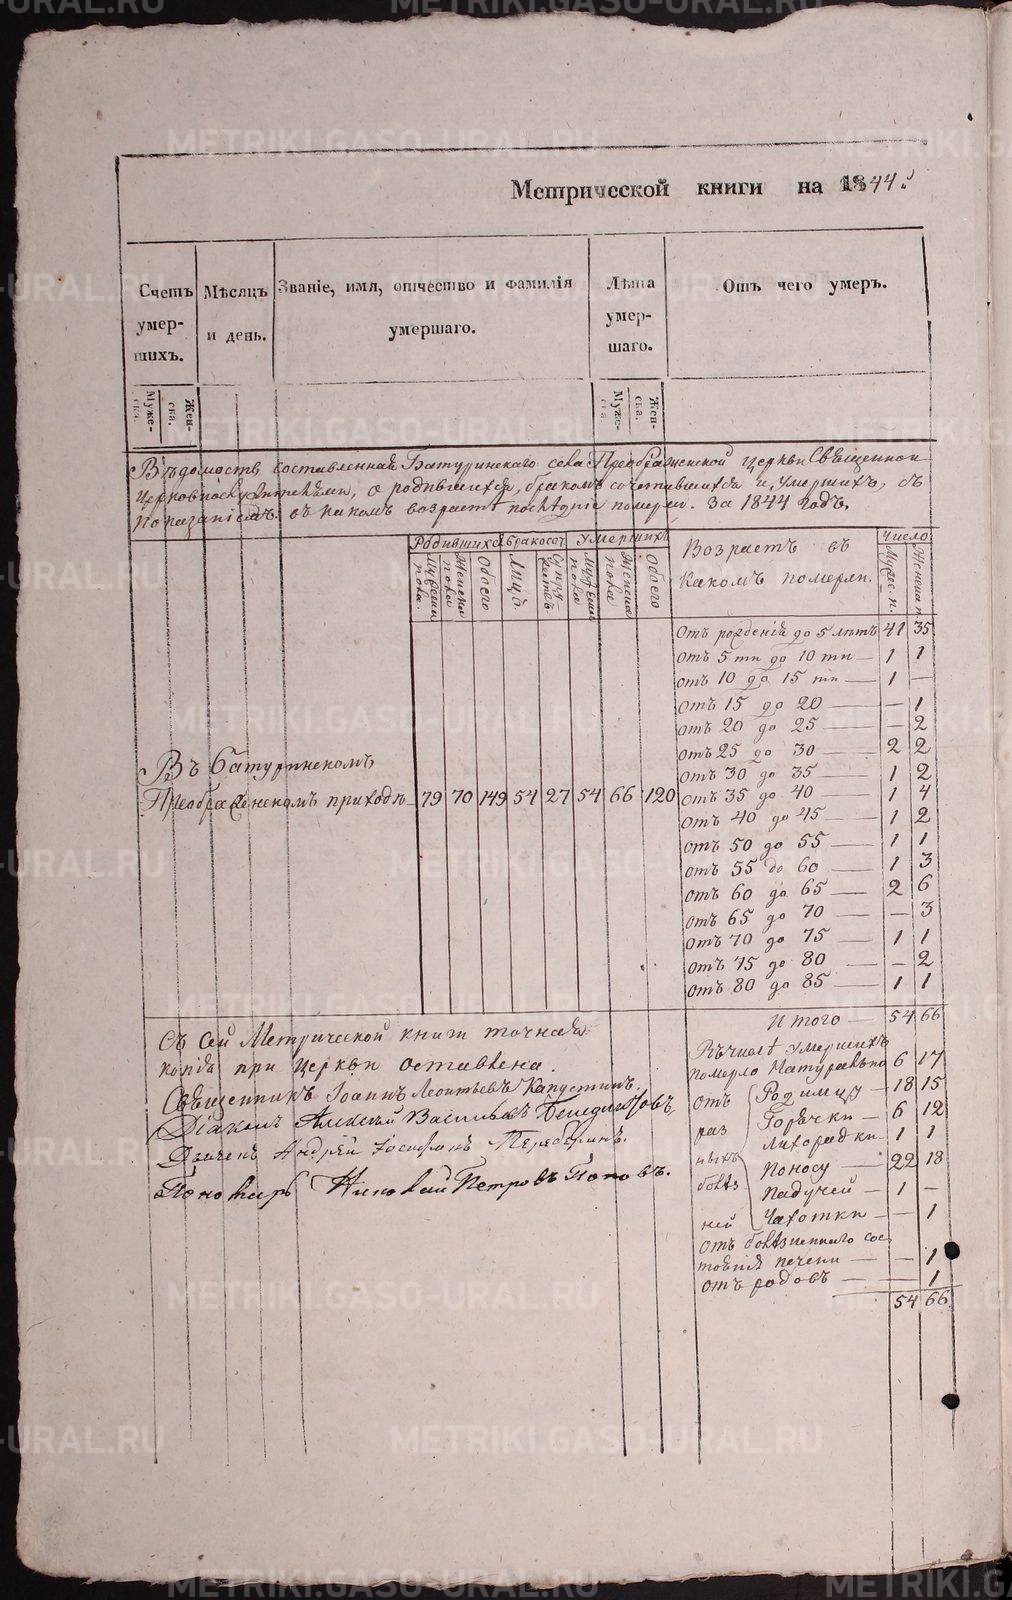 Метрической книги на 1844й
Счетъ умер- шихъ.
Мѣсяцъ и день.
Званіе, имя, отчество и фамилія умершаго.
Лѣта умер- шаго.
Отъ чего умеръ.
Муже- ска.
Жен- ска.
Муже- ска
Жен- ска.
Вѣдомость, составленная Батуринскаго села Преображенской церкви Священно
церковнослужителями, о родившихся, бракомъ сочетавшихся и умершихъ, съ
показаніемъ въ какомъ возрастѣ послѣдніе померли. За 1844 годъ.
Родившихся
Бракосоч
Умершихъ
Возрастъ въ
Число
Мужеска пола.
Женска пола
Обоего
Лицъ
Супружествъ.
Мужеска пола
Женска пола
Обоего
какомъ померли.
Мужес. п.
Женска п.
Отъ рожденія до 5 лѣтъ 41 35
отъ 5 ти до 10 ти — 1 1
отъ 10 до 15 ти — 1 —
отъ 15 до 20 — — 1
отъ 20 до 25 — — 2
отъ 25 до 30 — 2 2
отъ 30 до 35 — 1 2
отъ 35 до 40 — 1 4
отъ 40 до 45 — 1 2
отъ 50 до 55 — 1 1
отъ 55 до 60 — 1 3
отъ 60 до 65 — 2 6
отъ 65 до 70 — — 3
отъ 70 до 75 — 1 1
отъ 75 до 80 — — 2
отъ 80 до 85 — 1 1
Итого — 54 66
Въ Батуринскомъ
Преображенскомъ приходѣ 79 70 149 54 27 54 66 120
Съ сей Метрической книги точная
копія при церкви оставлена.
Священникъ Іоаннъ Леонтьевъ Капустинъ.
Діаконъ Алексѣй Васильевъ Бенедиктовъ,
Дьячекъ Андрей Іосифовъ
Пономарь Николай Петровъ Поповъ.
Въ числѣ умершихъ
померло Натурально 6 17
отъ раз ныхъ болѣз ней
Родимцу — 18 15
Горячки — 6 12
Лихорадки 1 1
Поносу — 22 18
Падучей — 1 —
Чахотки — — 1
отъ болѣзненнаго сос
тоянія печени — — 1
отъ родовъ — — 1
54 66
METRIKI.GASO-URAL.RU